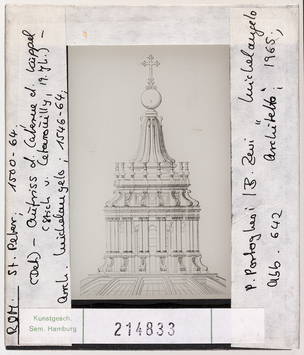 ROM. St. Peter, 1500-64.
(Det) - Aufriss d. Laterne d. Kuppel
(Stich v. Letarouilly, 19. Jh.) -
Arch. Michelangelo; 1546-64.
P. Portoghesi / B. Zevi "Michelangelo
architetto", 1965,
Abb. 642
Kunstgesch.
Sem. Hamburg
214833